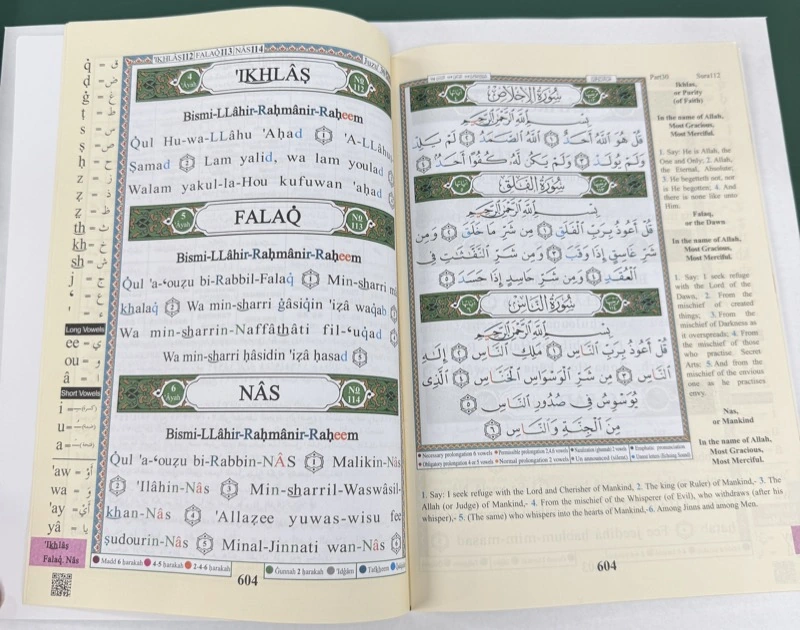 'IKHLÂṢ112 FALAQ̇113 NÂS114
q̇ = ق
ḍ = ض
ġ = غ
ṭ = ط
s = س
ṣ = ص
ḥ = ح
z = ز
ẓ = ذ
ẓ = ظ
th = ث
kh = خ
sh = ش
j = ج
Long Vowels
ee = ي
ou = و
â = ا
Short Vowels
i =
u =
a =
'aw = أَوْ
wa = وَ
'ay = أَيْ
yâ = يا
'Ikhlâṣ
Falaq̇. Nâs
4 Ayah 'IKHLÂṢ No 112
Bismi-LLâhir-Raḥmânir-Raḥeem
Q̇ul Hu-wa-LLâhu 'Aḥad 1 'A-LLâhu
Ṣamad 2 Lam yalid, wa lam youlad
Walam yakul-la-Hou kufuwan 'aḥad
5 Ayah FALAQ̇ No 113
Bismi-LLâhir-Raḥmânir-Raḥeem
Q̇ul 'a-ʿouẓu bi-Rabbil-Falaq̇ 1 Min-sharri m
khalaq̇ 2 Wa min-sharri ġâsiq̇in 'iẓâ waq̇ab
Wa min-sharrin-Naffâthâti fil-ʿuq̇ad
Wa min-sharri ḥâsidin 'iẓâ ḥasad 5
6 Ayah NÂS No 114
Bismi-LLâhir-Raḥmânir-Raḥeem
Q̇ul 'a-ʿouẓu bi-Rabbin-NÂS 1 Malikin-Nâs
2 'Ilâhin-Nâs 3 Min-sharril-Waswâsil-
khan-Nâs 4 'Allaẓee yuwas-wisu fee
ṣudourin-Nâs 5 Minal-Jinnati wan-Nâs 6
Madd 6 ḥarakah 4-5 ḥarakah 2-4-6 ḥarakah
Ġunnah 2 ḥarakah 'Idġâm Tafkheem
604
سُورَةُ الإِخْلَاصِ
بِسْمِ اللَّهِ الرَّحْمَٰنِ الرَّحِيمِ
قُلْ هُوَ اللَّهُ أَحَدٌ ١ اللَّهُ الصَّمَدُ ٢ لَمْ يَلِدْ
وَلَمْ يُولَدْ ٣ وَلَمْ يَكُن لَّهُ كُفُوًا أَحَدٌ ٤
سُورَةُ الْفَلَقِ
بِسْمِ اللَّهِ الرَّحْمَٰنِ الرَّحِيمِ
قُلْ أَعُوذُ بِرَبِّ الْفَلَقِ ١ مِن شَرِّ مَا خَلَقَ ٢ وَمِن
شَرِّ غَاسِقٍ إِذَا وَقَبَ ٣ وَمِن شَرِّ النَّفَّاثَاتِ فِي
الْعُقَدِ ٤ وَمِن شَرِّ حَاسِدٍ إِذَا حَسَدَ ٥
سُورَةُ النَّاسِ
بِسْمِ اللَّهِ الرَّحْمَٰنِ الرَّحِيمِ
قُلْ أَعُوذُ بِرَبِّ النَّاسِ ١ مَلِكِ النَّاسِ ٢ إِلَٰهِ
النَّاسِ ٣ مِن شَرِّ الْوَسْوَاسِ الْخَنَّاسِ ٤ الَّذِي
يُوَسْوِسُ فِي صُدُورِ النَّاسِ ٥
مِنَ الْجِنَّةِ وَالنَّاسِ ٦
Necessary prolongation 6 vowels Permissible prolongation 2,4,6 vowels Nazalization (ghunnah) 2 vowels Emphatic pronunciation
Obligatory prolongation 4 or 5 vowels Normal prolongation 2 vowels Un announced (silent) Unrest letters (Echoing Sound)
Part30 Sura112
Ikhlas,
or Purity
(of Faith)
In the name of Allah,
Most Gracious,
Most Merciful.
1. Say: He is Allah, the
One and Only; 2. Allah,
the Eternal, Absolute;
3. He begetteth not, nor
is He begotten; 4. And
there is none like unto
Him.
Falaq,
or the Dawn
In the name of Allah,
Most Gracious,
Most Merciful.
1. Say: I seek refuge
with the Lord of the
Dawn, 2. From the
mischief of created
things; 3. From the
mischief of Darkness as
it overspreads; 4. From
the mischief of those
who practise Secret
Arts; 5. And from the
mischief of the envious
one as he practises
envy.
Nas,
or Mankind
In the name of Allah,
Most Gracious,
Most Merciful.
1. Say: I seek refuge with the Lord and Cherisher of Mankind, 2. The king (or Ruler) of Mankind,- 3. The
Allah (or Judge) of Mankind,- 4. From the mischief of the Whisperer (of Evil), who withdraws (after his
whisper),- 5. (The same) who whispers into the hearts of Mankind,-6. Among Jinns and among Men.
604